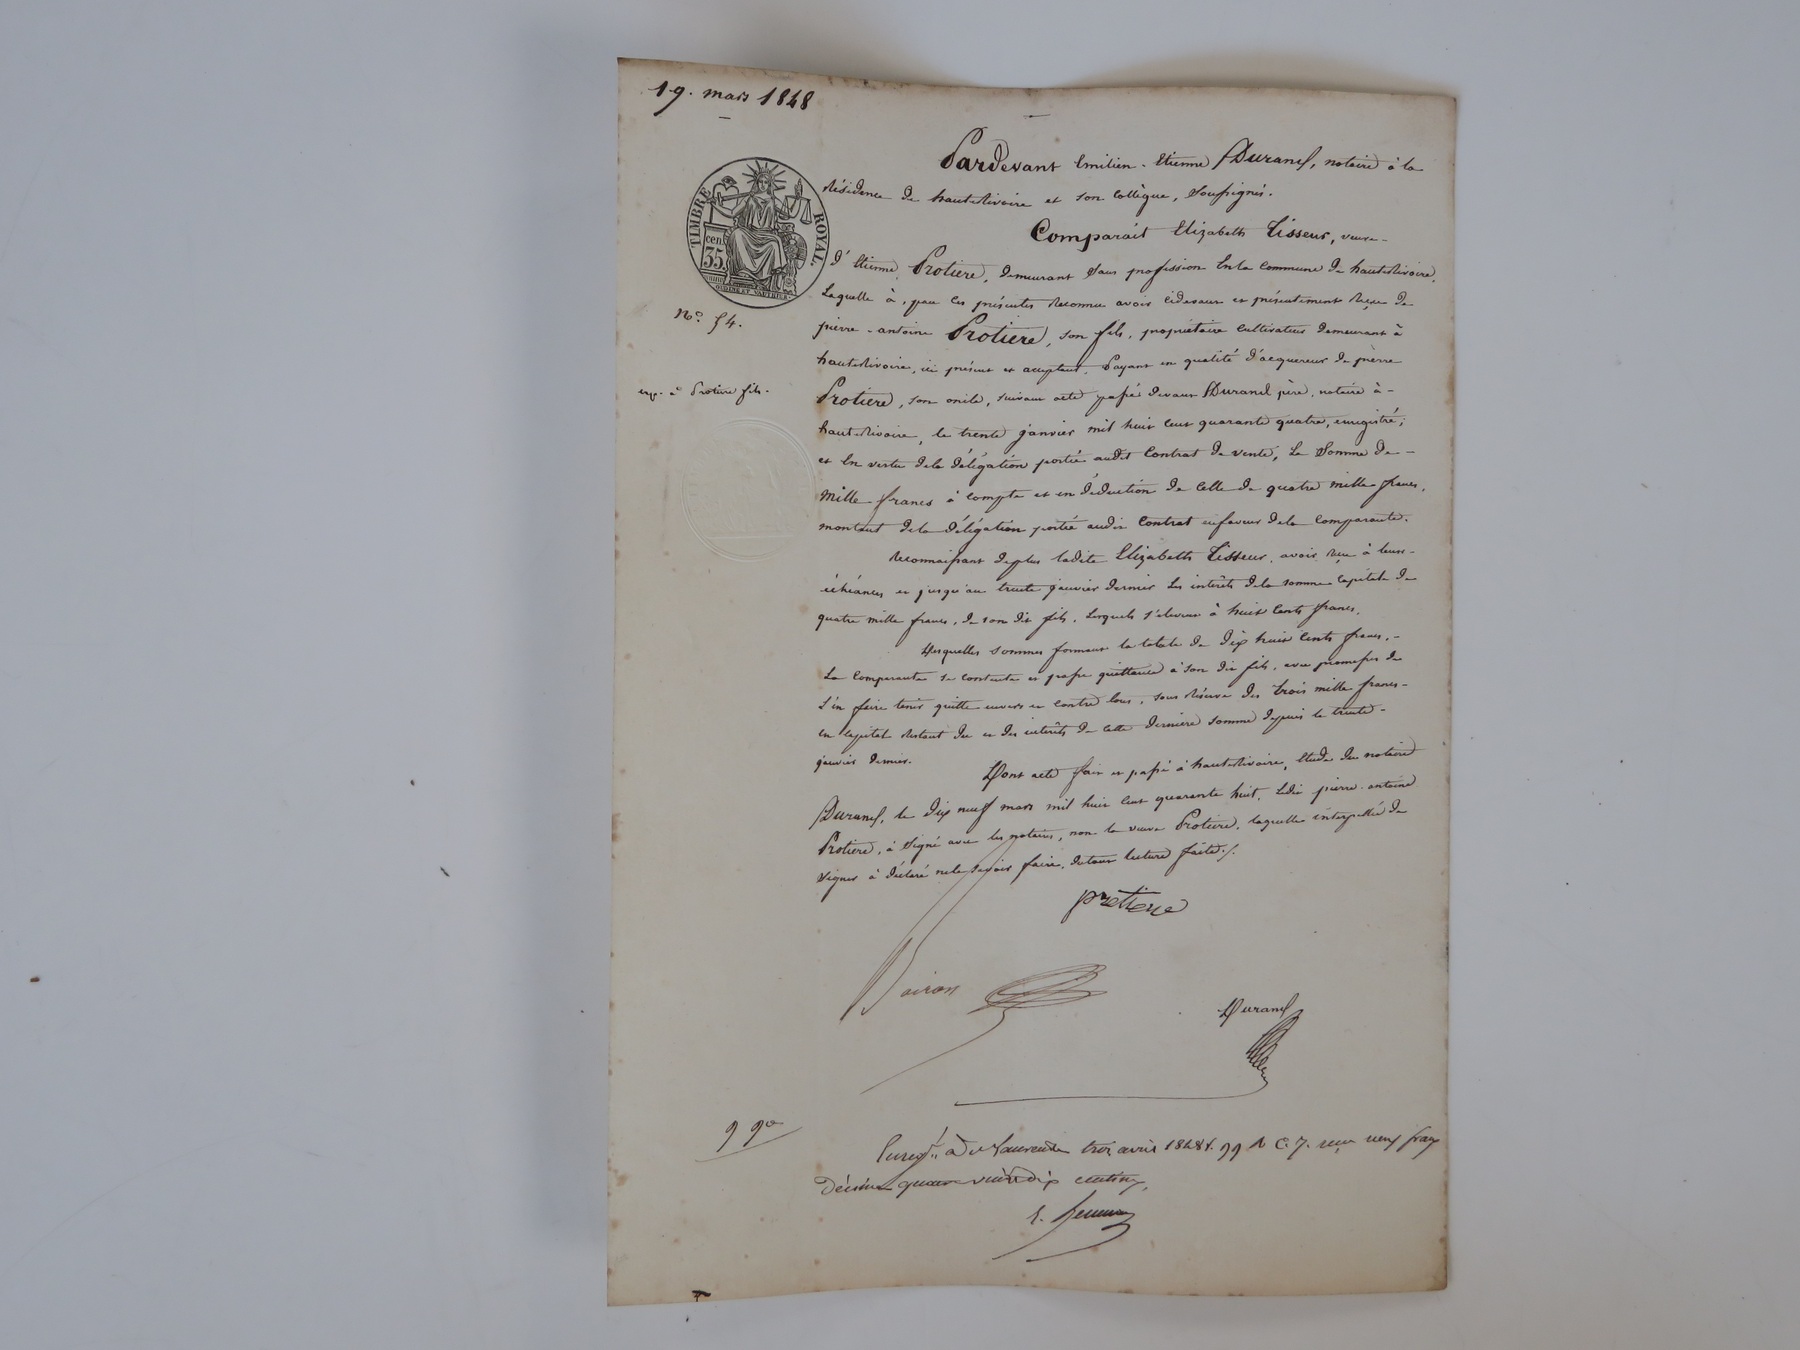 19. mars 1848
Pardevant Emilien-Etienne Durand, notaire à la
résidence de hauterivoire et son collègue, soussignés.
Comparait Elizabeth Tisseur, veuve
d'Etienne Protiere, demeurant sans profession en la commune de hauterivoire,
Laquelle à, par ces présentes reconnu avoir cidevant et présentement reçu de
pierre-antoine Protiere, son fils, propriétaire cultivateur demeurant à
hauterivoire, ici présent et acceptant, Payant en qualité d'acquereur de pierre
Protiere, son oncle, suivant acte passé devant Durand père, notaire à
hauterivoire, le trente janvier mil huit cent quarante quatre, enregistré;
et En vertu dela délégation portée audit Contrat de vente, La Somme de
Mille francs à compte et en déduction de Celle de quatre mille francs,
montant dela délégation portée audit Contrat enfaveur dela Comparante.
Reconnaissant deplus ladite Elizabeth Tisseur, avoir reçu à leurs
échéances et jusqu'au trente janvier dernier Les intérêts dela somme Capitale de
quatre mille francs, de son dit fils, Lesquels s'élèvent à huit Cents francs.
Desquelles sommes formant la totale de dix huit cents francs,
La Comparante se contente et passe quittance à son dit fils, avec promesses de
L'en faire tenir quitte envers et contre tous, sous réserve des trois mille francs
en Capital restant dû et des intérêts de cette dernière somme depuis le trente
janvier dernier.
Dont acte fait et passé à hauterivoire, Etude du notaire
Durand, le dix neuf mars mil huit cent quarante huit. Ledit pierre-antoine
Protiere, à signé avec les notaires, non la veuve Protiere, laquelle interpellée de
signer à déclaré nele savoir faire, detout lecture faite./.
protiere
Durand
TIMBRE ROYAL.
cen.
35.
No. 54.
exp. à Protiere fils.
9 90
Enregt. à St Laurent le trois avril 1848 f. 99 R C. 7. reçu neuf francs
décime quatre vingt dix centimes.